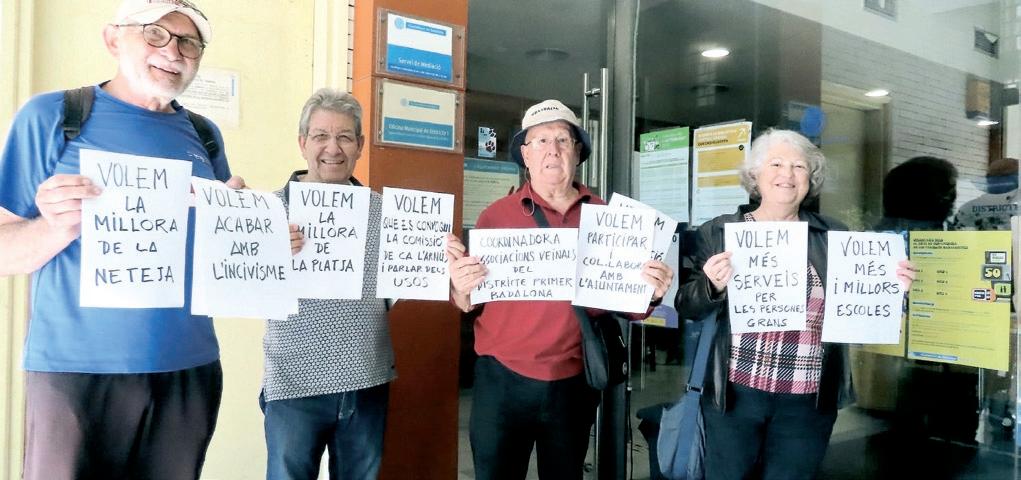 VOLEM
LA
MILLORA
DE LA
NETEJA
VOLEM
ACABAR
AMB
L'INCIVISME
VOLEM
LA
MILLORA
DE
LA PLATJA
VOLEM
QUE ES
LA COMISSIÓ
DE CA L'ARNÚS
I PARLAR DELS
USOS
COORDINADORA
ASSOCIACIONS VEINALS
DEL
DISTRICTE PRIMER
BADALONA
VOLEM
PARTICIPAR
I
COL.LABORAR
AMB
L'AJUNTAMENT
VOLEM
MÉS
SERVEIS
PER
LES PERSONES
GRANS
VOLEM
MÉS
I MILLORS
ESCOLES
Servei de Mediació
Oficina Municipal de Districte 1
50